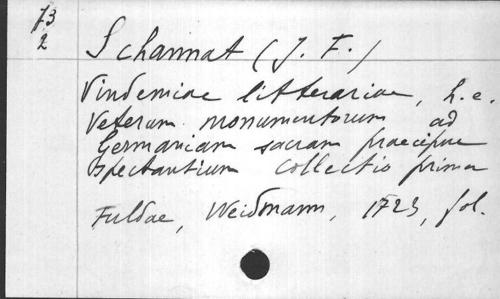 73
2
Schannat (J. F.)
Vindemiae litterariae, h. e.
Veterum monumentorum ad
Germaniam sacram praecipue
spectantium collectio prima
Fuldae, Weidmann, 1723, fol.